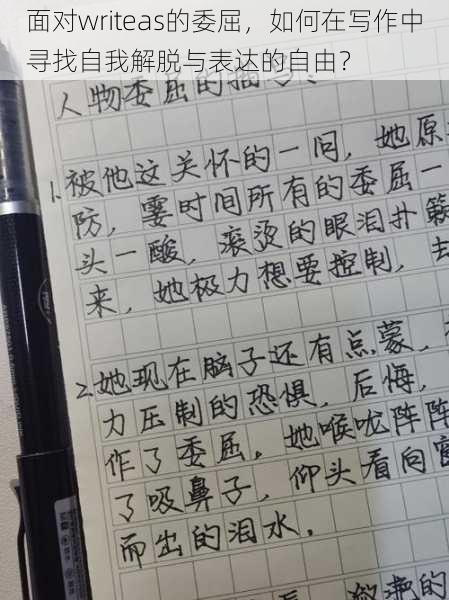 面对writeas的委屈，如何在写作中
寻找自我解脱与表达的自由？
人物委屈的描写：
1.被他这关怀的一问，她原
防，霎时间所有的委屈一
头一酸，滚烫的眼泪扑簌
来，她极力想要控制，
2.她现在脑子还有点蒙，
力压制的恐惧，后悔，
作了委屈，她喉咙阵阵
了吸鼻子，仰头看向窗
而出的泪水，